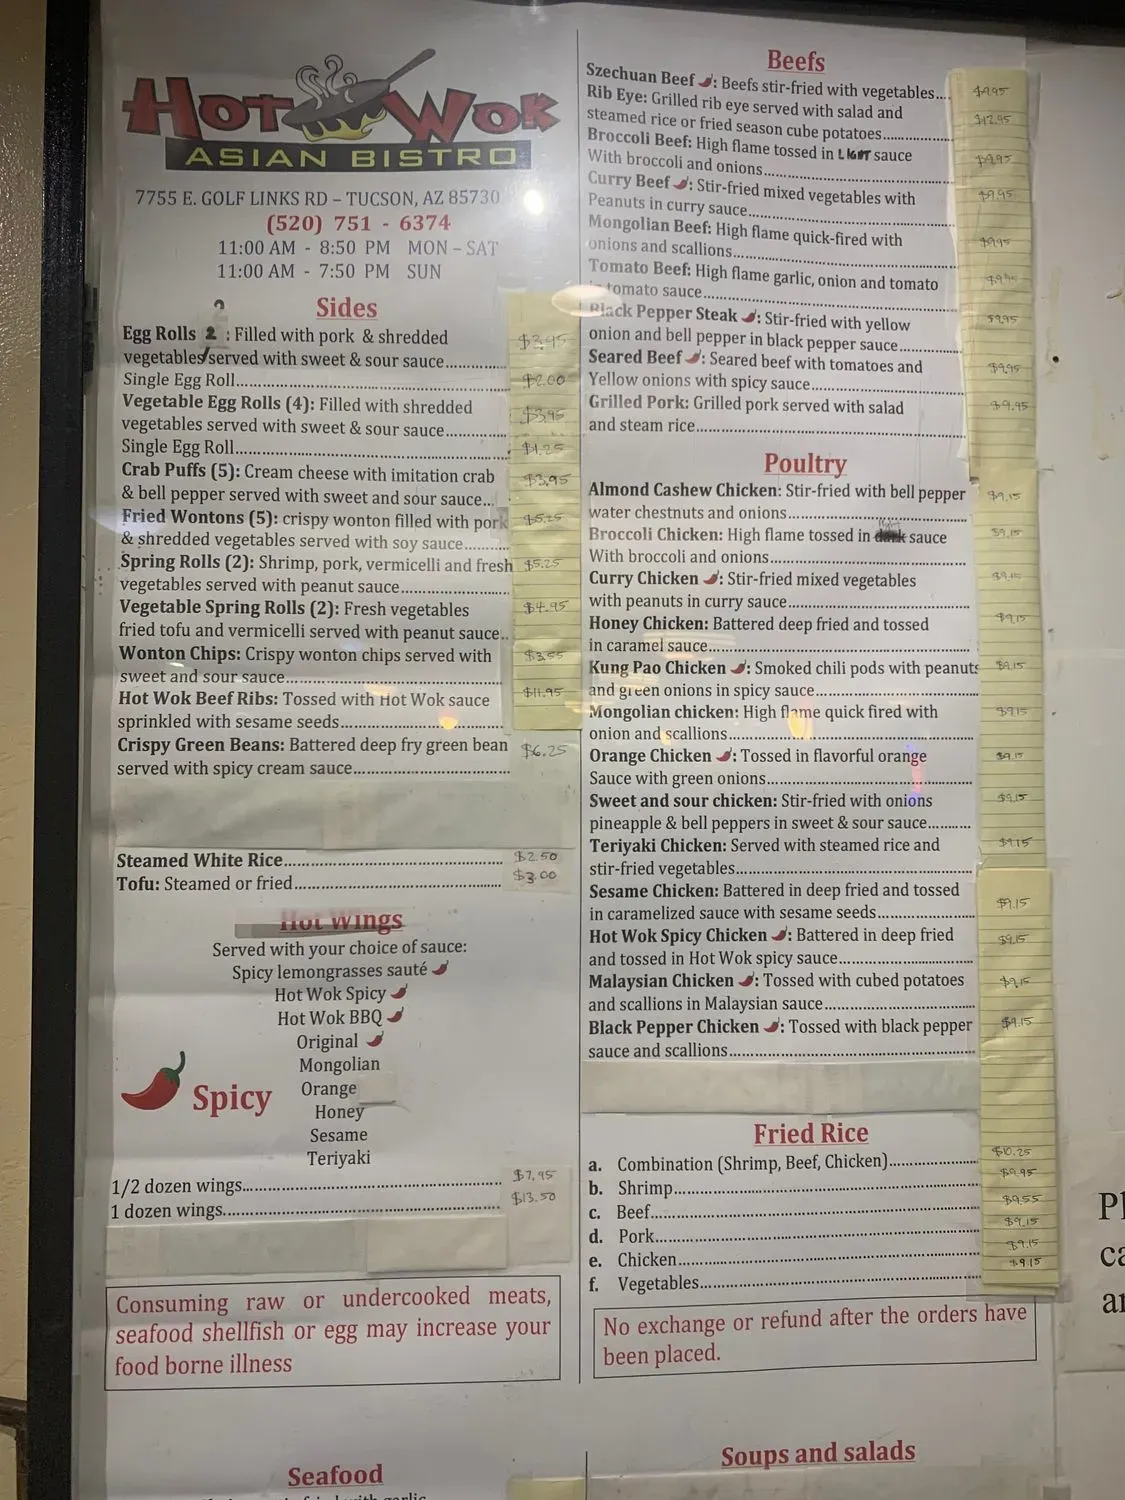 HOT WOK
ASIAN BISTRO
7755 E. GOLF LINKS RD – TUCSON, AZ 85730
(520) 751 - 6374
11:00 AM - 8:50 PM MON – SAT
11:00 AM - 7:50 PM SUN
Sides
2
Egg Rolls 2 : Filled with pork & shredded
vegetables served with sweet & sour sauce............ $3.95
Single Egg Roll............ $2.00
Vegetable Egg Rolls (4): Filled with shredded
vegetables served with sweet & sour sauce............ $3.95
Single Egg Roll............ $1.25
Crab Puffs (5): Cream cheese with imitation crab
& bell pepper served with sweet and sour sauce... $3.95
Fried Wontons (5): crispy wonton filled with pork $5.25
& shredded vegetables served with soy sauce.........
Spring Rolls (2): Shrimp, pork, vermicelli and fresh $5.25
vegetables served with peanut sauce............
Vegetable Spring Rolls (2): Fresh vegetables $4.95
fried tofu and vermicelli served with peanut sauce..
Wonton Chips: Crispy wonton chips served with $3.55
sweet and sour sauce............
Hot Wok Beef Ribs: Tossed with Hot Wok sauce $11.95
sprinkled with sesame seeds............
Crispy Green Beans: Battered deep fry green bean $6.25
served with spicy cream sauce............
Steamed White Rice............ $2.50
Tofu: Steamed or fried............ $3.00
Hot Wings
Served with your choice of sauce:
Spicy lemongrasses sauté
Hot Wok Spicy
Hot Wok BBQ
Original
Mongolian
Orange
Honey
Sesame
Teriyaki
Spicy
1/2 dozen wings............ $7.95
1 dozen wings............ $13.50
Consuming raw or undercooked meats,
seafood shellfish or egg may increase your
food borne illness
Seafood
Beefs
Szechuan Beef : Beefs stir-fried with vegetables.... $9.95
Rib Eye: Grilled rib eye served with salad and
steamed rice or fried season cube potatoes............ $12.95
Broccoli Beef: High flame tossed in LIGHT sauce
With broccoli and onions............ $9.95
Curry Beef : Stir-fried mixed vegetables with
Peanuts in curry sauce............ $9.95
Mongolian Beef: High flame quick-fired with
onions and scallions............ $9.95
Tomato Beef: High flame garlic, onion and tomato
in tomato sauce............ $9.95
Black Pepper Steak : Stir-fried with yellow
onion and bell pepper in black pepper sauce............ $9.95
Seared Beef : Seared beef with tomatoes and
Yellow onions with spicy sauce............ $9.95
Grilled Pork: Grilled pork served with salad $9.95
and steam rice............
Poultry
Almond Cashew Chicken: Stir-fried with bell pepper $9.15
water chestnuts and onions............
Broccoli Chicken: High flame tossed in sauce $9.15
With broccoli and onions............
Curry Chicken : Stir-fried mixed vegetables $9.15
with peanuts in curry sauce............
Honey Chicken: Battered deep fried and tossed $9.15
in caramel sauce............
Kung Pao Chicken : Smoked chili pods with peanuts $9.15
and green onions in spicy sauce............
Mongolian chicken: High flame quick fired with $9.15
onion and scallions............
Orange Chicken : Tossed in flavorful orange $9.15
Sauce with green onions............
Sweet and sour chicken: Stir-fried with onions $9.15
pineapple & bell peppers in sweet & sour sauce.........
Teriyaki Chicken: Served with steamed rice and $9.15
stir-fried vegetables............
Sesame Chicken: Battered in deep fried and tossed $9.15
in caramelized sauce with sesame seeds............
Hot Wok Spicy Chicken : Battered in deep fried $9.15
and tossed in Hot Wok spicy sauce............
Malaysian Chicken : Tossed with cubed potatoes $9.15
and scallions in Malaysian sauce............
Black Pepper Chicken : Tossed with black pepper $9.15
sauce and scallions............
Fried Rice
a. Combination (Shrimp, Beef, Chicken)............ $10.25
b. Shrimp............ $9.95
c. Beef............ $9.55
d. Pork............ $9.15
e. Chicken............ $9.15
f. Vegetables............ $9.15
No exchange or refund after the orders have
been placed.
Soups and salads